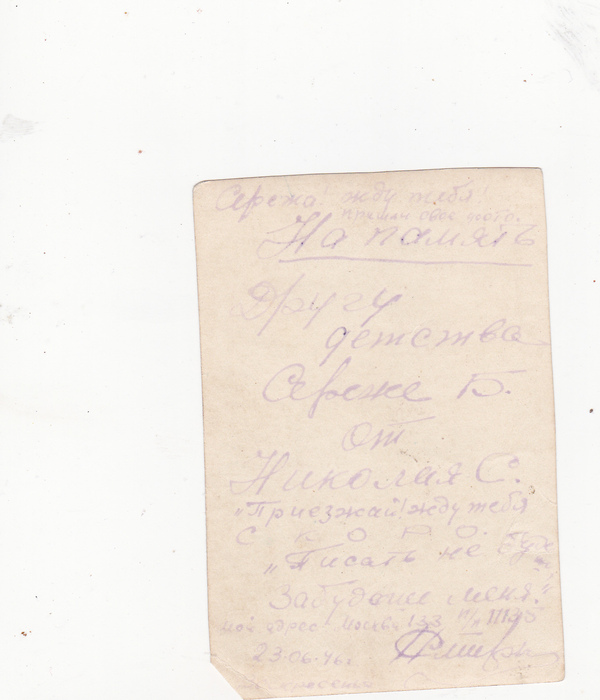 Сережа! жду тебя!
пришли свое фото.
На память
Другу
детства
Сереже Б.
от
Николая С.
„Приезжай! жду тебя
С К О Р О.
„Писать не
Забудьте меня."
мой адрес Москва 133 п/я
23.06.46г.